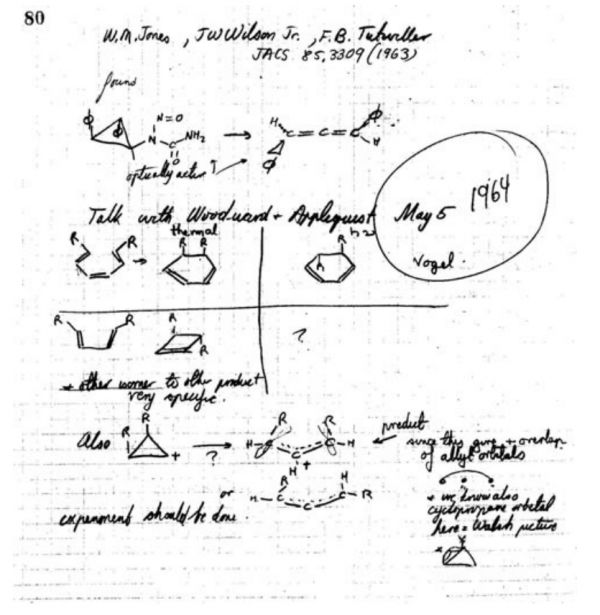 80
W.M. Jones, JW Wilson Jr., F.B. Tutwiller
JACS 85, 3309 (1963)
found
N=O
N
NH₂
C
O
H
C=C=C
H
optically active
Talk with Woodward + Applequist May 5 1964
thermal
R R R R R
Vogel.
R R R R ?
+ other isomer to other product
very specific.
Also R R + ? H C C C H R R H
product
since this gives + overlap
of allyl orbitals
+
or H C C C R R H
experiment should be done.
+ we know also
cyclopropane orbital
here = Walsh picture